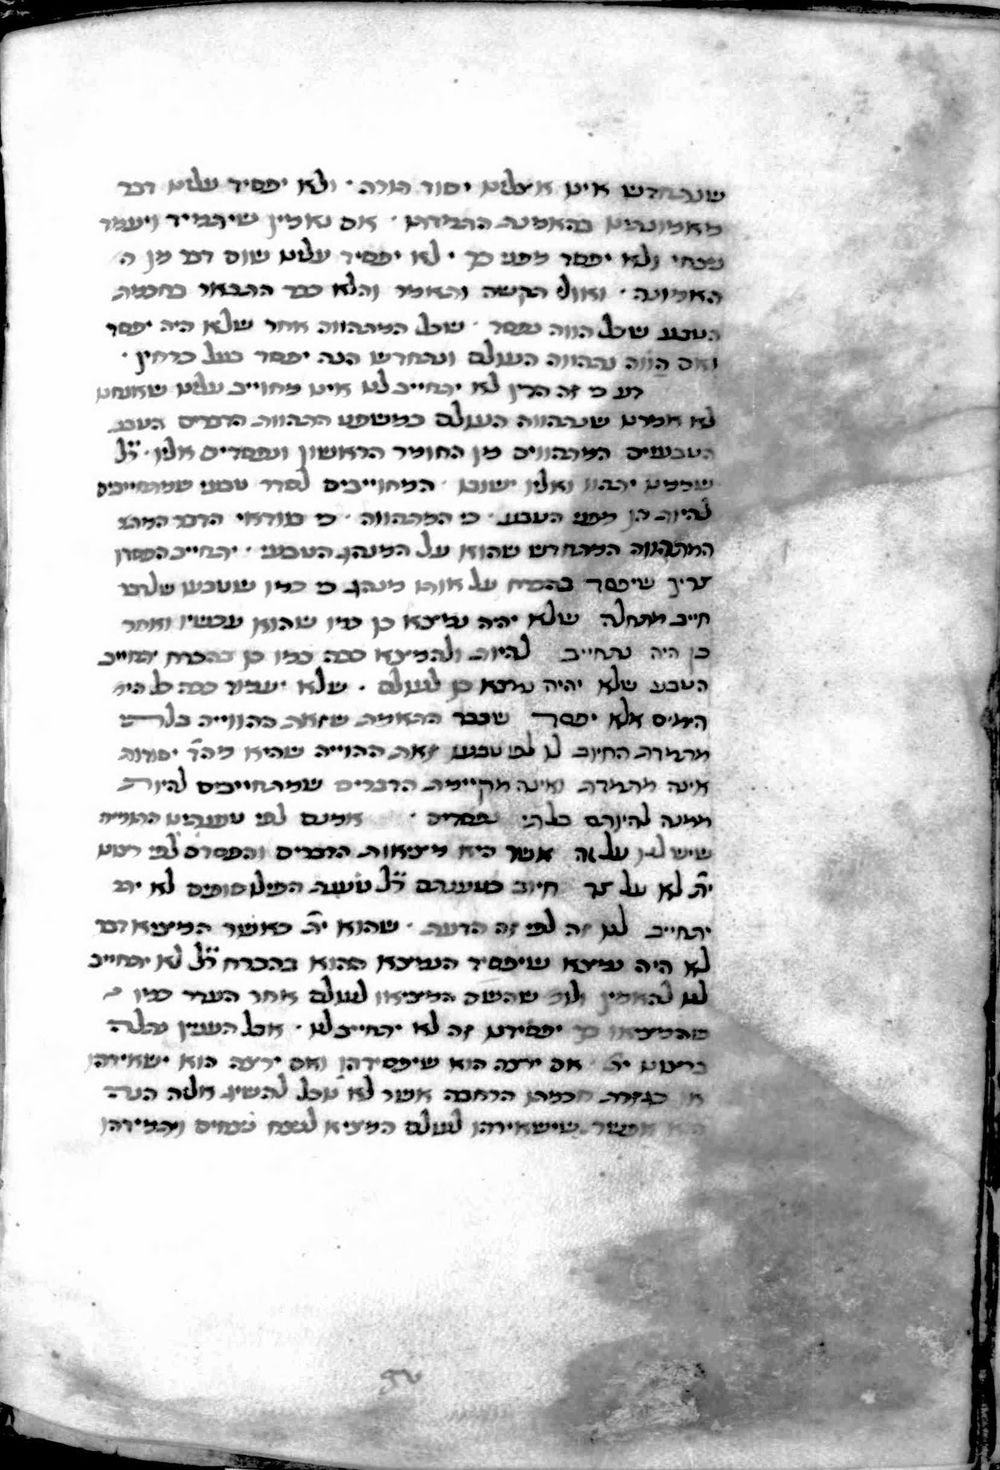 שנתחדש אינו אצלינו יסוד תורה · ולא יפסיד עלינו דבר
מאמונתינו בהאמנת התמדתו · אם נאמין שיתמיד ויעמד
נצחי ולא יפסד מפני כך · לא יפסיד עלינו שום דבר מן ה
האמונה · ואולי תקשה ותאמר והלא כבר התבאר בחכמת
הטבע שכל הווה נפסד · שכל המתהווה אחר שלא היה יפסד
ואם הווה נתהווה העולם ונתחדש הנה יפסד בעל כרחין ·
דע כי זה הדין לא יתחייב לנו אינו מחוייב עלינו שאנחנו
לא אמרנו שנתהווה העולם כמשפט התהוות הדברים הטבע
הטבעיים המתהווים מן החומר הראשון ונפסדים אליו · ר״ל
שממנו יתהוו ואליו ישובו · המחוייבים לסדר טבעי שמתחייבים
להיות הן מפני הטבע · כי המתהווה · כי בודאי הדבר המתהו
המתהווה המתחדש שהוא על המנהג הטבעי · יתחייב הפסדו
צריך שיפסד בהכרח על אותו מנהג כי כמו שטבע שלדבר
חייב מתחלה שלא יהיה נמצא כן כמו שהוא עכשיו ואחר
כן היה נתחייב להיות ולהמצא ככה כמו כן בהכרח יחוייב
הטבע שלא יהיה נמצא כן לעולם · שלא יעמוד ככה כל היו
הימים אלא יפסד שכבר התאמת שזאת ההווייה בלתי
מתמדת החיוב לו לפי טבעו זאת ההוייה שהיא מהד׳ יסודות
אינה מתמדת ואינה מקיימת הדברים שמתחייבים להיות
ממנה להיותם בלתי נפסדים · אמנם לפי טענתינו התורייה
שיש לנו על זה אשר היא מציאות הדברים והפסדם לפי רצונו
ית׳ לא על צד חיוב כטענתם ר״ל טענת הפילוסופים לא ית
יתחייב לנו זה לפי זה הדעת · שהוא ית׳ כאשר המציא דבר
לא היה נמצא שיפסיד הנמצא ההוא בהכרח ר״ל לא יתחייב
לנו להאמין ולומר שהשם המציאו לעולם אחר העדר כמו כ
שהמציאו כך יפסידנו זה לא יתחייב לנו · אבל הענין נתלה
ברצונו ית׳ · אם ירצה הוא שיפסידהו ואם ירצה הוא ישאירהו
או כגזרת חכמתו הרחבה אשר לא נוכל להשיג אליה הנה
הוא אפשר שישאירהו לעולם המציא לנצח נצחים ויתמידהו